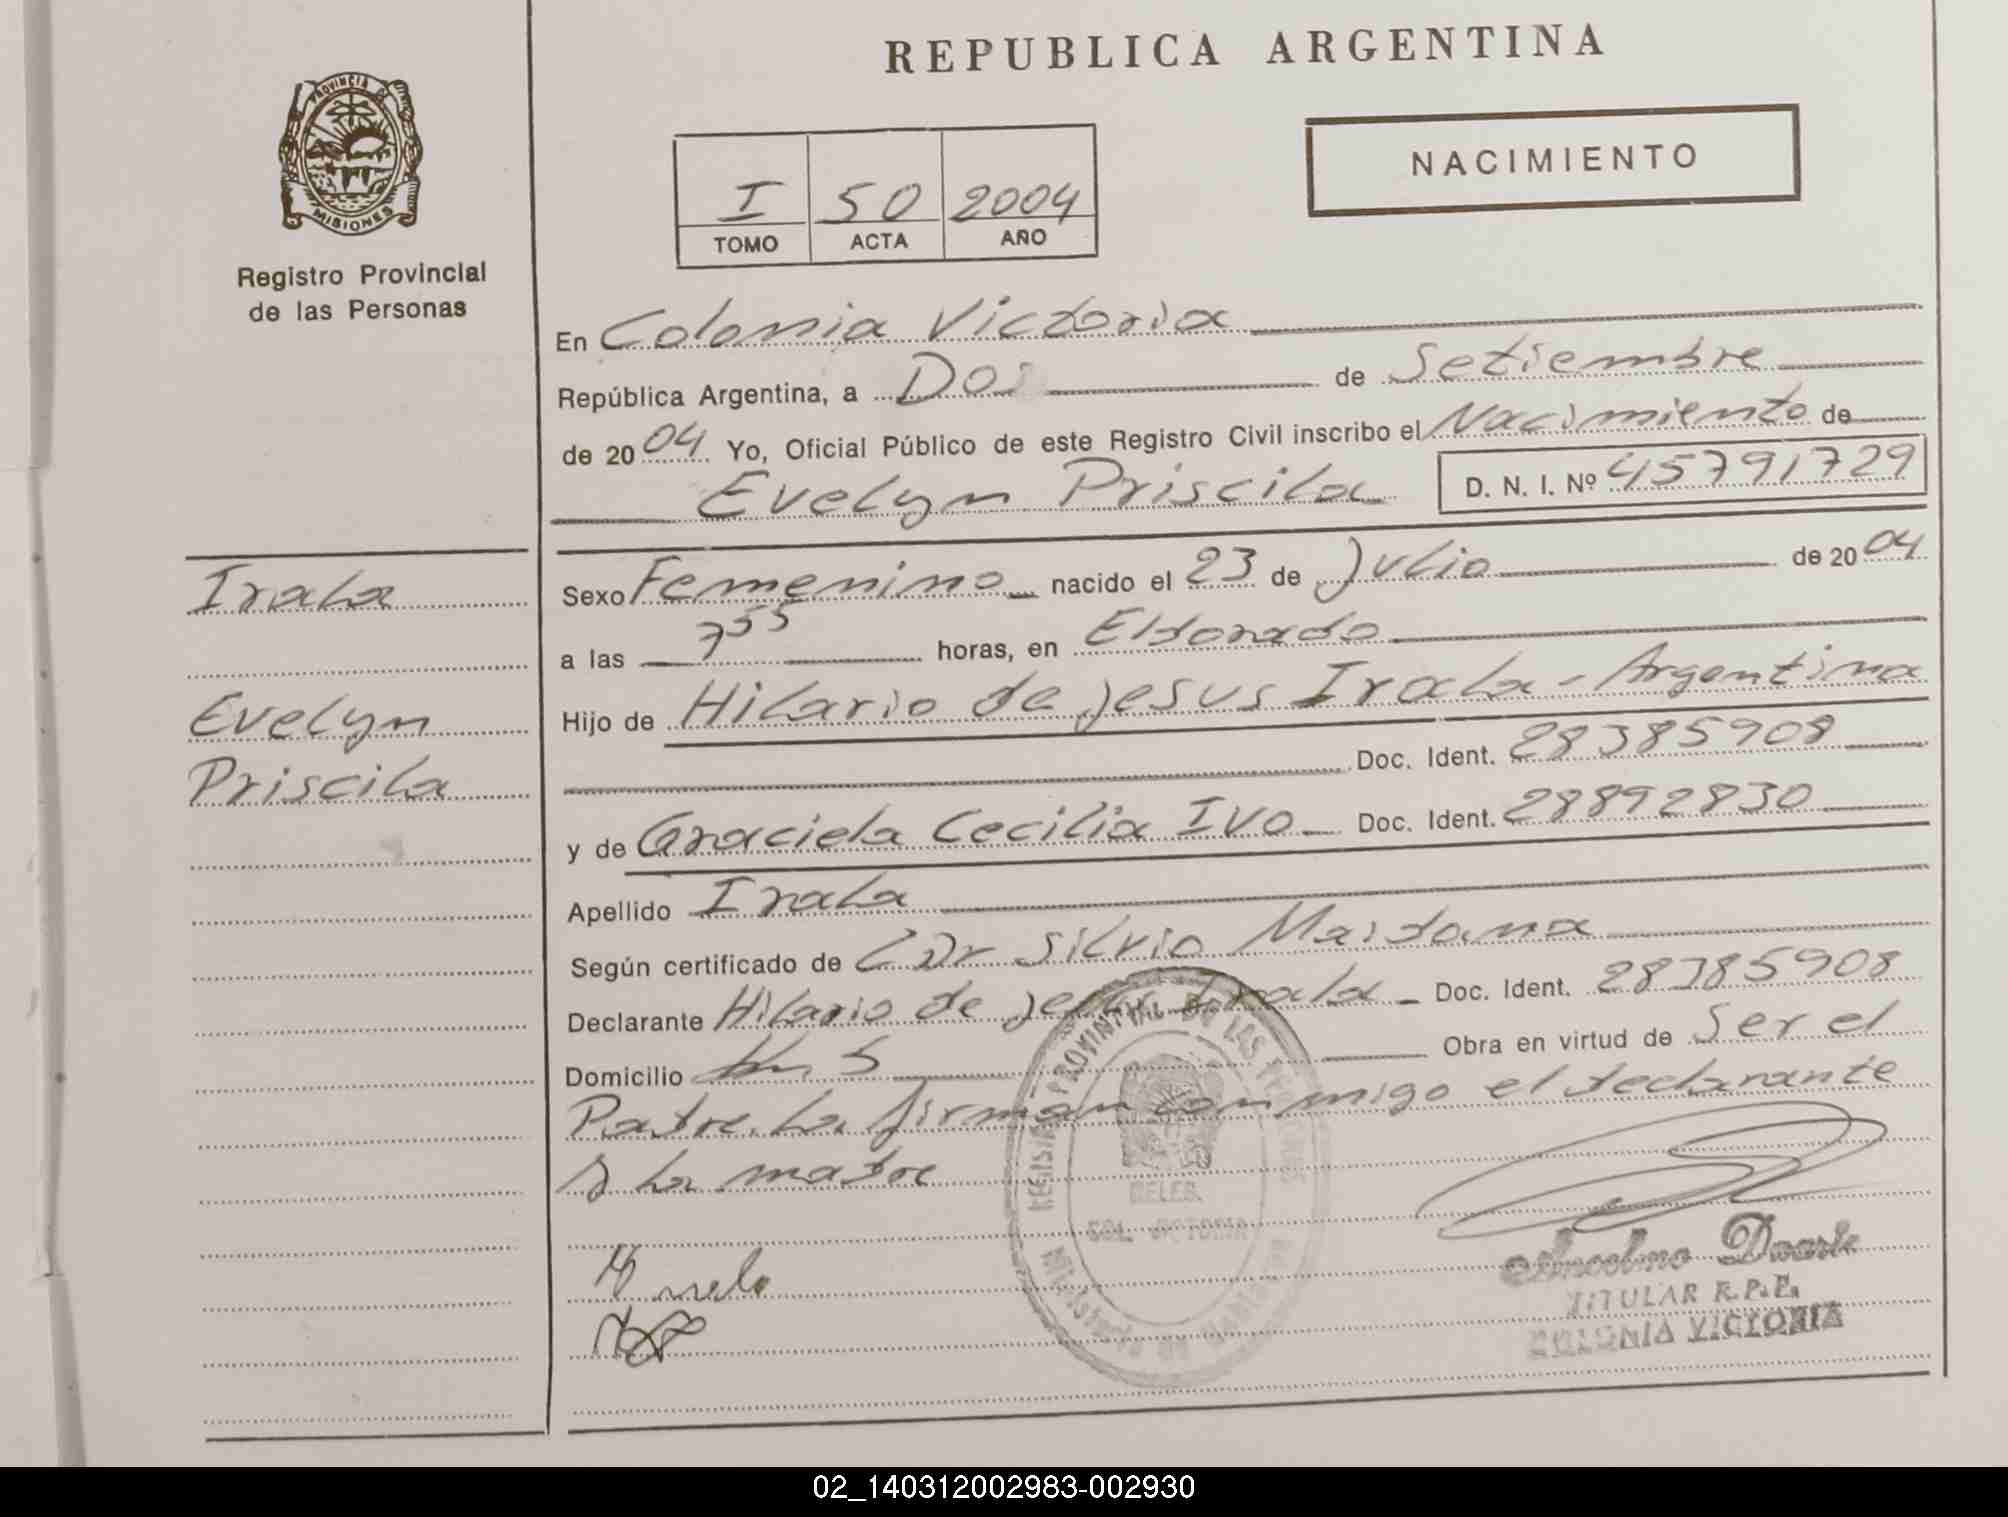 REPUBLICA ARGENTINA
PROVINCIA DE
MISIONES
Registro Provincial
de las Personas
NACIMIENTO
I 50 2004
TOMO ACTA AÑO
En Colonia Victoria
República Argentina, a Dos de Setiembre
de 2004 Yo, Oficial Público de este Registro Civil inscribo el Nacimiento de
Evelyn Priscila D. N. I. Nº 45791729
Irala
Evelyn
Priscila
Sexo Femenino nacido el 23 de Julio de 2004
a las 7 55 horas, en Eldorado
Hijo de Hilario de Jesus Irala - Argentina
Doc. Ident. 28385908
y de Graciela Cecilia Ivo Doc. Ident. 28892830
Apellido Irala
Según certificado de Dr Silvio Maidana
Declarante Hilario de Jesus Irala Doc. Ident. 28385908
Domicilio Km 5 Obra en virtud de Ser el
Padre. La firman conmigo el declarante
y la madre
DELEG.
COL. VICTORIA
Duarte
TITULAR R.P.P.
COLONIA VICTORIA
02_140312002983-002930